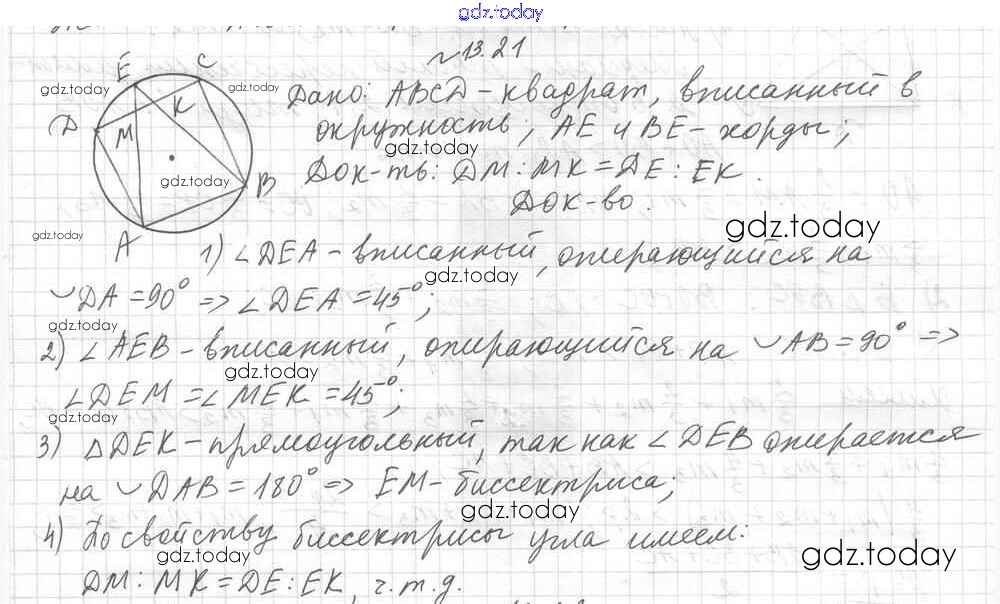 gdz.today
№13.21
E C
gdz.today
gdz.today
Дано: ABCD - квадрат, вписанный в
D M K
окружность; AE и BE - хорды;
gdz.today
gdz.today
Док-ть: DM : MK = DE : EK.
B
Док-во.
A
gdz.today
gdz.today
1) ∠DEA - вписанный, опирающийся на
gdz.today
◡DA = 90° => ∠DEA = 45°;
gdz.today
2) ∠AEB - вписанный, опирающийся на ◡AB = 90° =>
gdz.today
∠DEM = ∠MEK = 45°;
gdz.today
3) △DEK - прямоугольный, так как ∠DEB опирается
на ◡DAB = 180° => EM - биссектриса;
gdz.today
4) По свойству биссектрисы угла имеем:
gdz.today
gdz.today
DM : MK = DE : EK, ч.т.д.